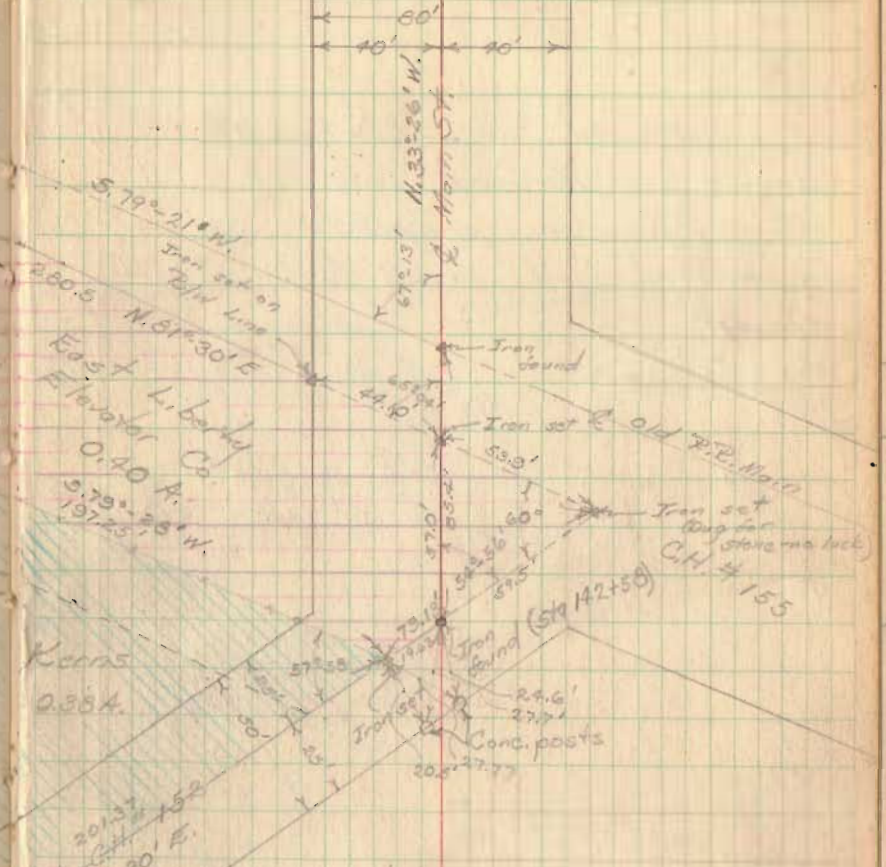 80'
40' 40'
N.33°-26' W.
℄ Main St.
67°-13'
S.79°-21' W.
Iron set on
R/W Line
280.5
N.81°-30' E
East Liberty
Elevator Co.
0.40 A.
S.79°-28' W.
197.25'
Iron
found
44.10'
Iron set
℄ Old R.R. Main
53.9'
60°
Iron set
(Dug for
stone-no luck)
C.H. # 155
57.0'
85.4'
59.5'
Iron
found (Sta 142+58)
Kerns
0.38A.
57°-35'
50'
25'
Iron set
24.6'
27.7'
Conc. posts
20.5' 27.77
201.37
C.H. # 152